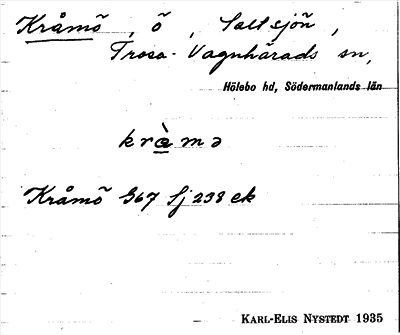 Kråmö, ö, Saltsjön,
Trosa-Vagnhärads sn,
Hölebo hd, Södermanlands län
Kråmö G67 Sj 238 ek
KARL-ELIS NYSTEDT 1935